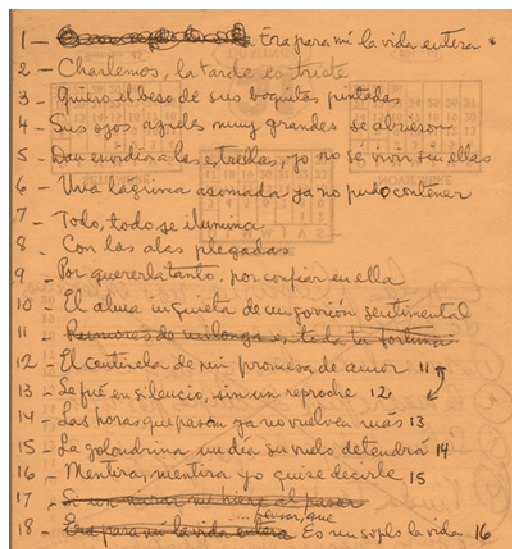 1 - Era para mí la vida entera
2 - Charlemos, la tarde es triste
3 - Quiero el beso de sus boquitas pintadas
4 - Sus ojos azules muy grandes se abrieron
5 - Dan envidia a las estrellas, yo no sé vivir sin ellas
6 - Una lágrima asomada ya no pudo contener
7 - Todo, todo se ilumina
8 - Con las alas plegadas
9 - Por quererla tanto, por confiar en ella
10 - El alma inquieta de un gorrión sentimental
11 - Rumores de milonga es toda tu fortuna
12 - El centinela de mi promesa de amor 11
13 - Se fué en silencio, sin un reproche 12
14 - Las horas que pasan ya no vuelven más 13
15 - La golondrina un día su vuelo detendrá 14
16 - Mentira, mentira yo quise decirle 15
17 - Si una al pasar
... pensar, que
18 - Era para mí la vida entera Es un soplo la vida 16
SETIEMBRE
NOVIEMBRE